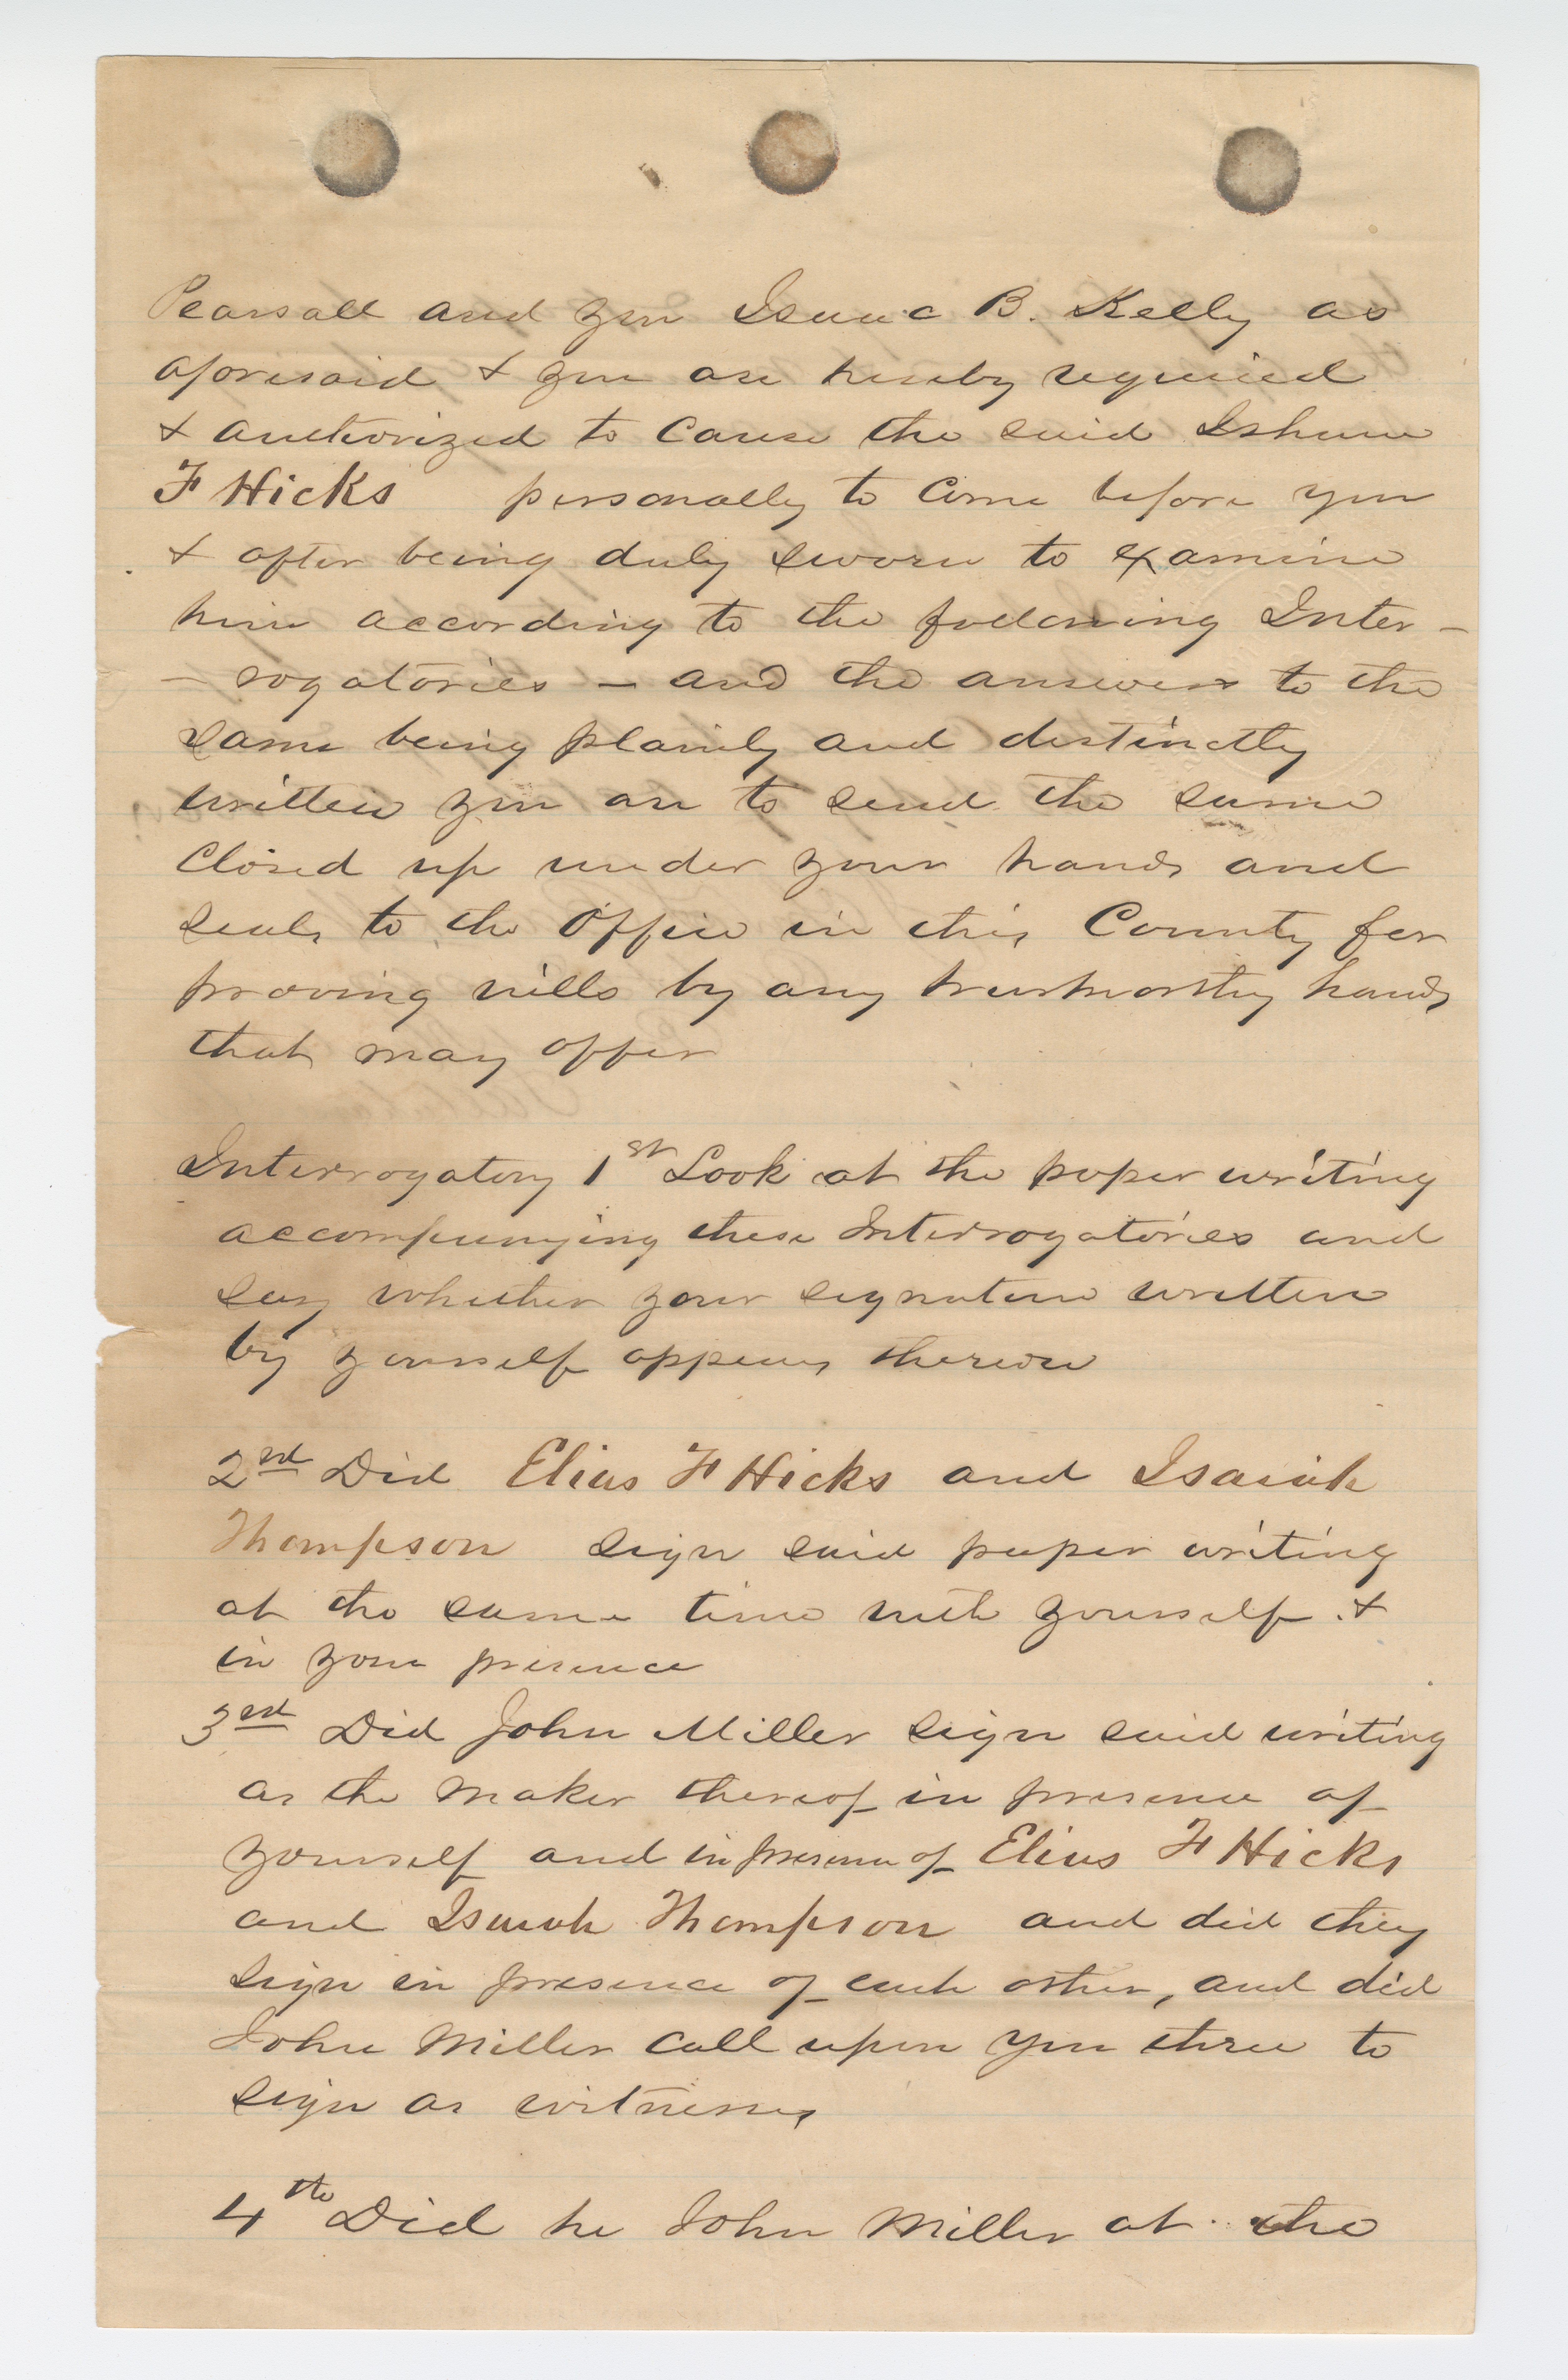 Pearsall and you Isaac B. Kelly as
aforesaid & you are hereby required
& authorized to cause the said Isham
F Hicks personally to come before you
& after being duly sworn to examine
him according to the following Inter-
- rogatories - and the answers to the
same being plainly and distinctly
written you are to send the same
Closed up under your hands and
seals to the Office in this County for
proving wills by any trustworthy hands
that may offer
Interrogatory 1st Look at the paper writing
accompanying these Interrogatories and
say whether your signature written
by yourself appears thereon
2nd Did Elias F Hicks and Isaiah
Thompson sign said paper writing
at the same time with yourself &
in your presence
3rd Did John Miller sign said writing
as the maker thereof in presence of
yourself and in presence of Elias F Hicks
and Isaiah Thompson and did they
sign in presence of each other, and did
John Miller call upon you three to
sign as witnesses
4th Did he John Miller at the